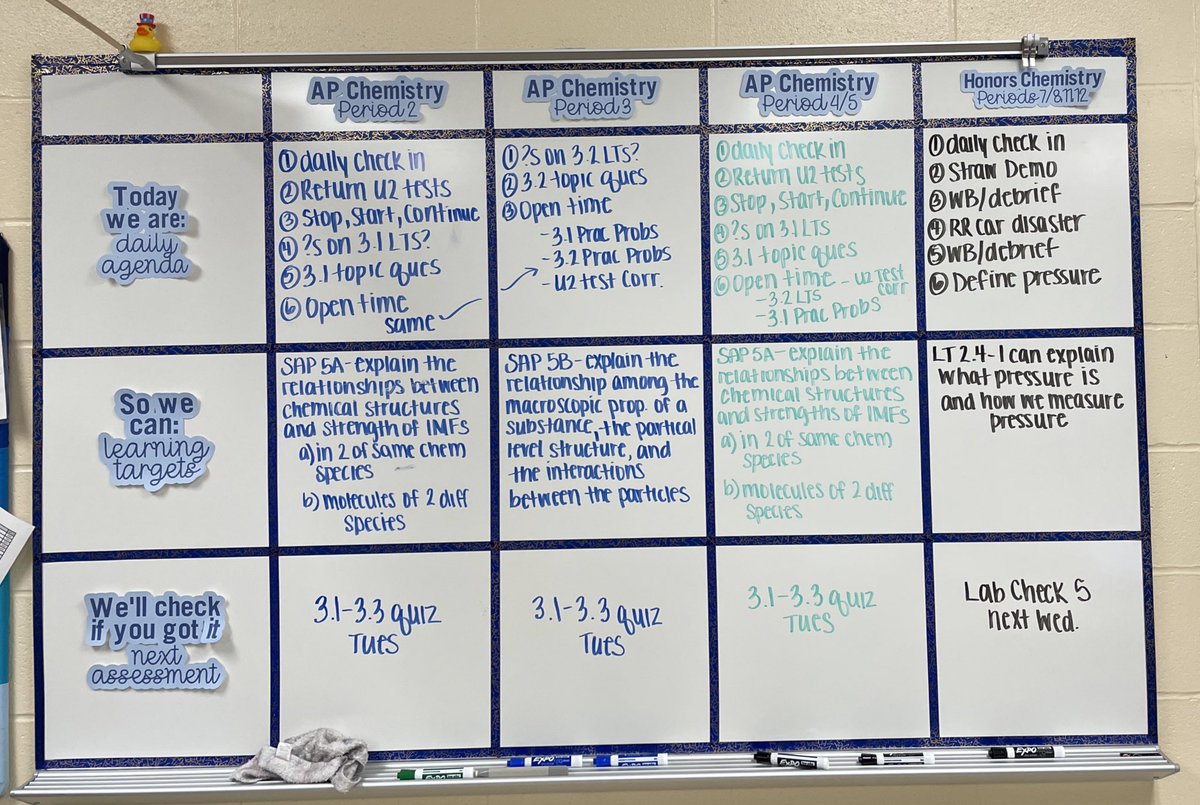 AP Chemistry
Period 2
AP Chemistry
Period 3
AP Chemistry
Period 4/5
Honors Chemistry
Periods 7/8,11,12
Today
we are:
daily
agenda
① daily check in
② Return U2 tests
③ Stop, Start, Continue
④ ?s on 3.1 LTs?
⑤ 3.1 topic ques
⑥ Open time
same
① ?s on 3.2 LTs?
② 3.2 topic ques
③ Open time
- 3.1 Prac Probs
- 3.2 Prac Probs
- U2 test Corr.
① daily check in
② Return U2 tests
③ Stop, Start, Continue
④ ?s on 3.1 LTs
⑤ 3.1 topic ques
⑥ Open time - U2 Test
corr
- 3.2 LTs
- 3.1 Prac Probs
① daily check in
② Straw Demo
③ WB/debrief
④ RR car disaster
⑤ WB/debrief
⑥ Define pressure
So we
can:
learning
targets
SAP 5A- explain the
relationships between
chemical structures
and strength of IMFs
a) in 2 of same chem
species
b) molecules of 2 diff
species
SAP 5B- explain the
relationship among the
macroscopic prop. of a
substance, the partical
level structure, and
the interactions
between the particles
SAP 5A- explain the
relationships between
chemical structures
and strengths of IMFs
a) in 2 of same chem
species
b) molecules of 2 diff
species
LT 2.4- I can explain
what pressure is
and how we measure
pressure
We'll check
if you got it
next
assessment
3.1-3.3 quiz
Tues
3.1-3.3 quiz
Tues
3.1-3.3 quiz
Tues
Lab Check 5
next Wed.
EXPO
EXPO
EXPO
EXPO
EXPO